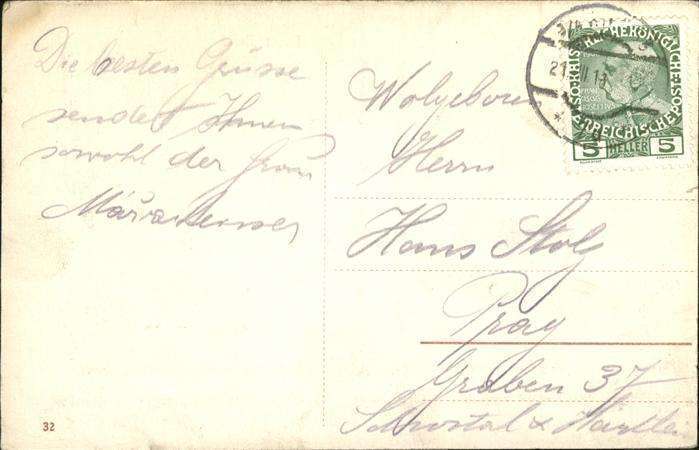 Die besten Grüsse
sendet Ihnen
sowohl der Frau
Wolgeboren
Herrn
Hans Stolz
Prag
Graben 37
Schostal & Härtlein
KAISERLICHE KÖNIGLICHE ÖSTERREICHISCHE POST
5 HELLER 5
32